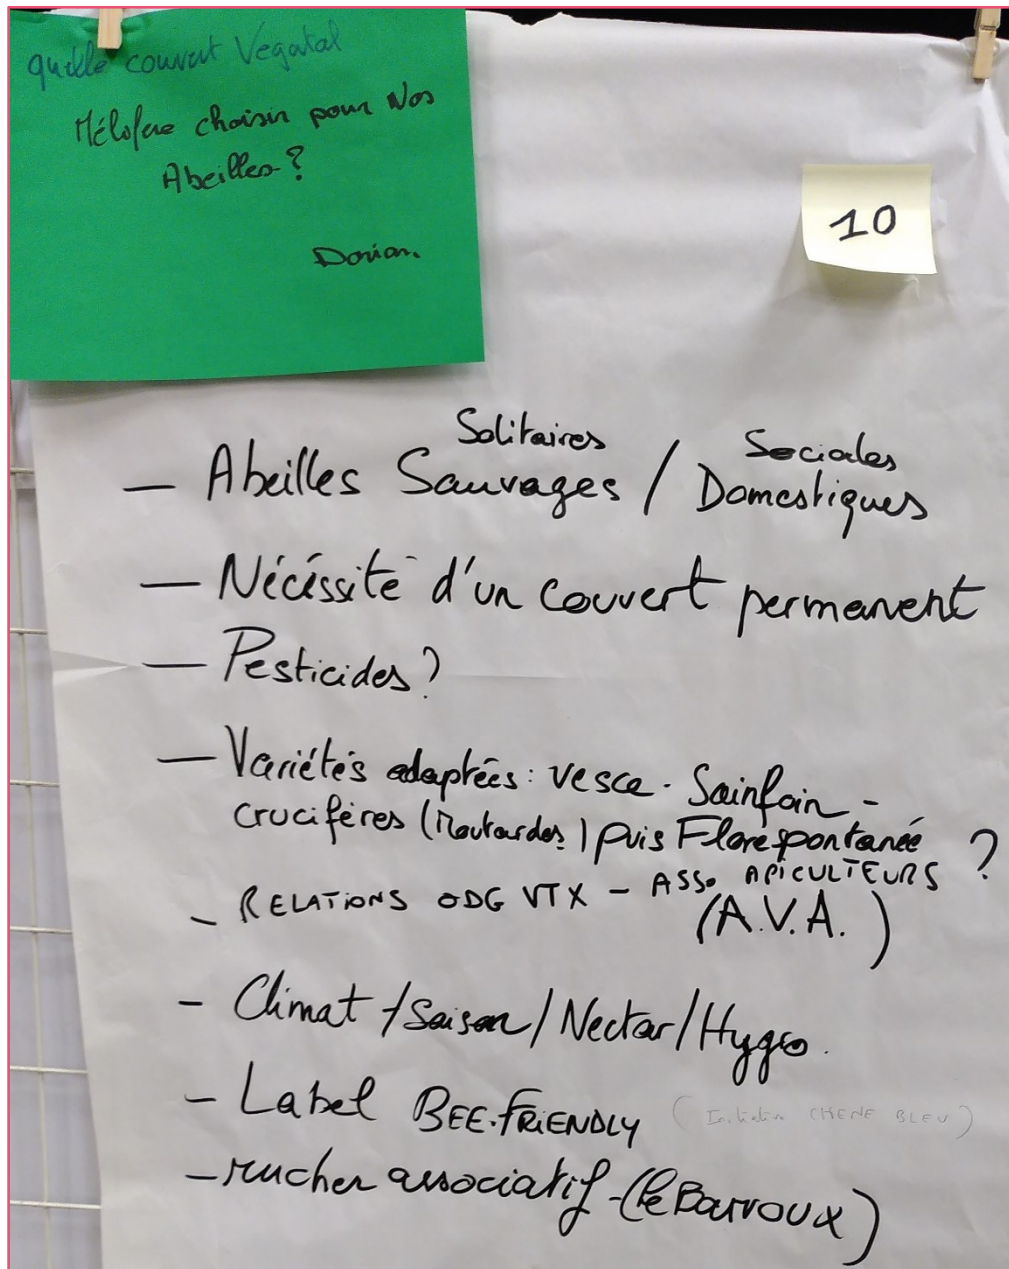 quelle couvert Vegatal
Mélofere choisir pour Nos
Abeilles?
Dorian.
10
Solitaires Sociales
— Abeilles Sauvages / Domestiques
— Nécéssité d'un couvert permanent
— Pesticides?
— Variétés adaptées: vesce - Sainfoin -
crucifères (Moutardes) puis Flore spontanée ?
- RELATIONS ODG VTX - ASSO APICULTEURS
(A.V.A.)
- Climat / Saison / Nectar / Hygro.
- Label BEE.FRIENDLY (Initiative CHENE BLEU)
- rucher associatif - (le Barroux)